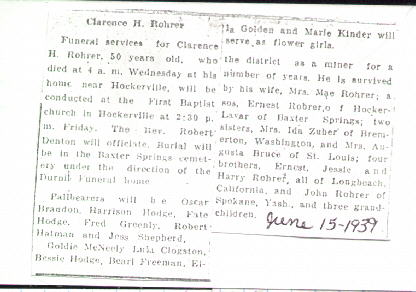 Clarence H. Rohrer
Funeral services for Clarence
H. Rohrer, 50 years old, who
died at 4 a. m. Wednesday at his
home near Hockerville, will be
conducted at the First Baptist
church in Hockerville at 2:30 p.
m. Friday. The Rev. Robert
Denton will officiate. Burial will
be in the Baxter Springs cemet-
ery under the direction of the
Durnil Funeral home
Pallbearers will be Oscar
Brandon, Harrison Hodge, Fate
Hodge, Fred Greenly, Robert
Hatman and Jess Shepherd,
Goldie McNeely Lula Clogston,
Bessie Hodge, Pearl Freeman, El-
la Golden and Marie Kinder will
serve as flower girls.
the district as a miner for a
number of years. He is survived
by his wife, Mrs. Mae Rohrer; a
son, Ernest Rohrer,o f Hocker-
Lavar of Baxter Springs; two
sisters, Mrs. Ida Zuber of Brem-
erton, Washington, and Mrs. Au-
gusta Bruce of St. Louis; four
brothers, Ernest, Jessie and
Harry Rohrer, all of Longbeach,
California, and John Rohrer of
Spokane, Yash., and three grand-
children.
June 15-1939